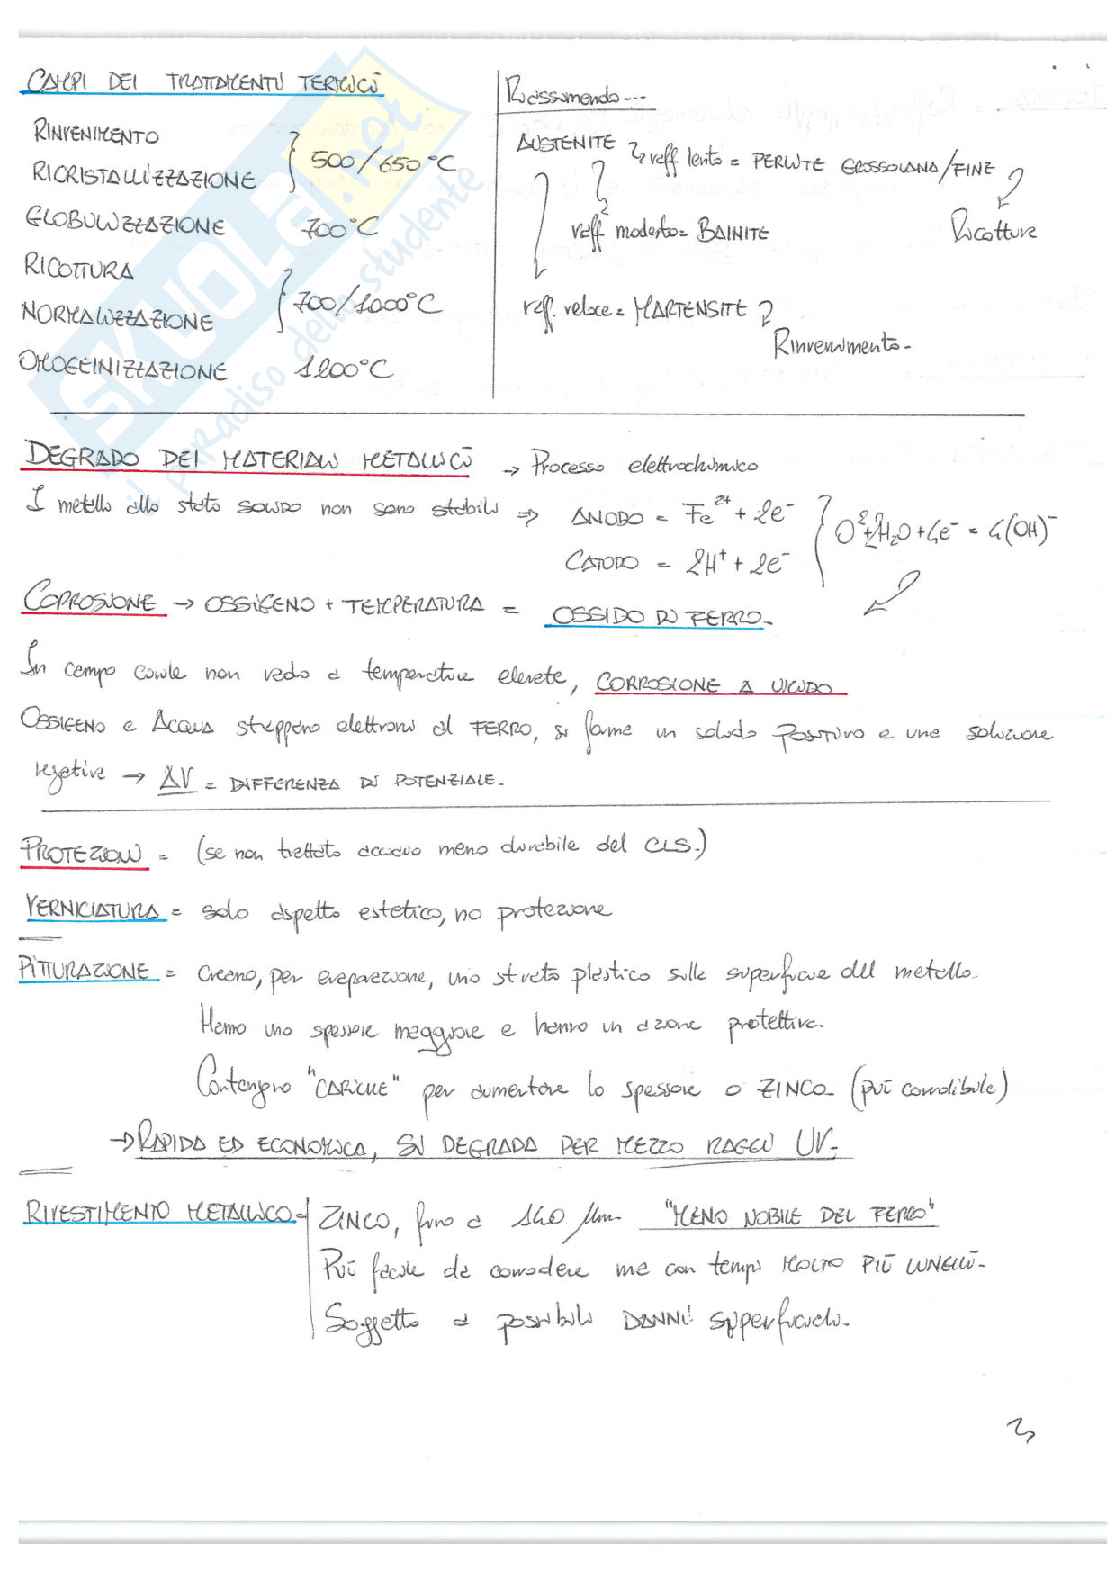 CAMPI DEI TRATTAMENTI TERMICI
RINVENIMENTO
RICRISTALLIZZAZIONE
500/650°C
GLOBULIZZAZIONE 700°C
RICOTTURA
NORMALIZZAZIONE
700/1000°C
OMOGEINIZZAZIONE 1200°C
Riassumendo...
AUSTENITE raff lento = PERLITE GROSSOLANA/FINE
raff moderato = BAINITE Ricottura
raff. veloce = MARTENSITE
Rinvenimento.
DEGRADO DEI MATERIALI METALLICI → Processo elettrochimico
I metalli allo stato SOLIDO non sono stabili ⇒ ANODO = Fe²⁺ + 2e⁻
CATODO = 2H⁺ + 2e⁻
O²+H₂O+4e⁻ = 4(OH)⁻
CORROSIONE → OSSIGENO + TEMPERATURA = OSSIDO DI FERRO.
In campo civile non vado a temperature elevate, CORROSIONE A UMIDO
OSSIGENO e ACQUA strappano elettroni al FERRO, si forma un solido POSITIVO e una soluzione
negativa → ΔV = DIFFERENZA DI POTENZIALE.
PROTEZIONI = (se non trattato acciaio meno durabile del CLS.)
VERNICIATURA = solo aspetto estetico, no protezione
PITTURAZIONE = Creano, per evaporazione, uno strato plastico sulla superficie del metallo.
Hanno uno spessore maggiore e hanno un azione protettiva.
Contengono "CARICHE" per aumentare lo spessore o ZINCO. (più corrodibile)
→ RAPIDA ED ECONOMICA, SI DEGRADA PER MEZZO RAGGI UV.
RIVESTIMENTO METALLICO - ZINCO, fino a 140 μm. "MENO NOBILE DEL FERRO"
Più facile da corrodere ma con tempi MOLTO PIÙ LUNGHI.
Soggetto a possibili DANNI superficiali.
SKUOLA.net
il paradiso dello studente